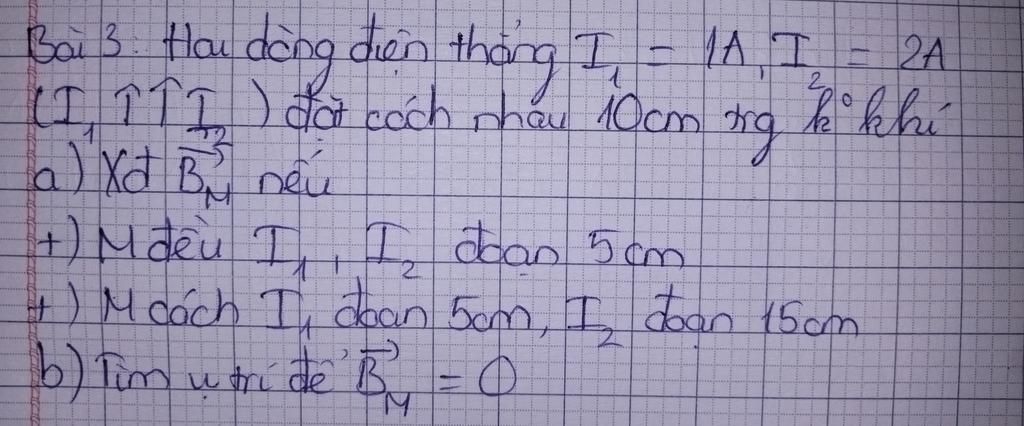 Bài 3: Hai dòng điện thẳng I₁ = 1A, I₂ = 2A
(I₁ ↑↑ I₂) đặt cách nhau 10cm trg k° khí
a) Xđ B⃗_M nếu
+) M đều I₁, I₂ đoạn 5cm
+) M cách I₁ đoạn 5cm, I₂ đoạn 15cm
b) Tìm vị trí để B⃗_M = 0